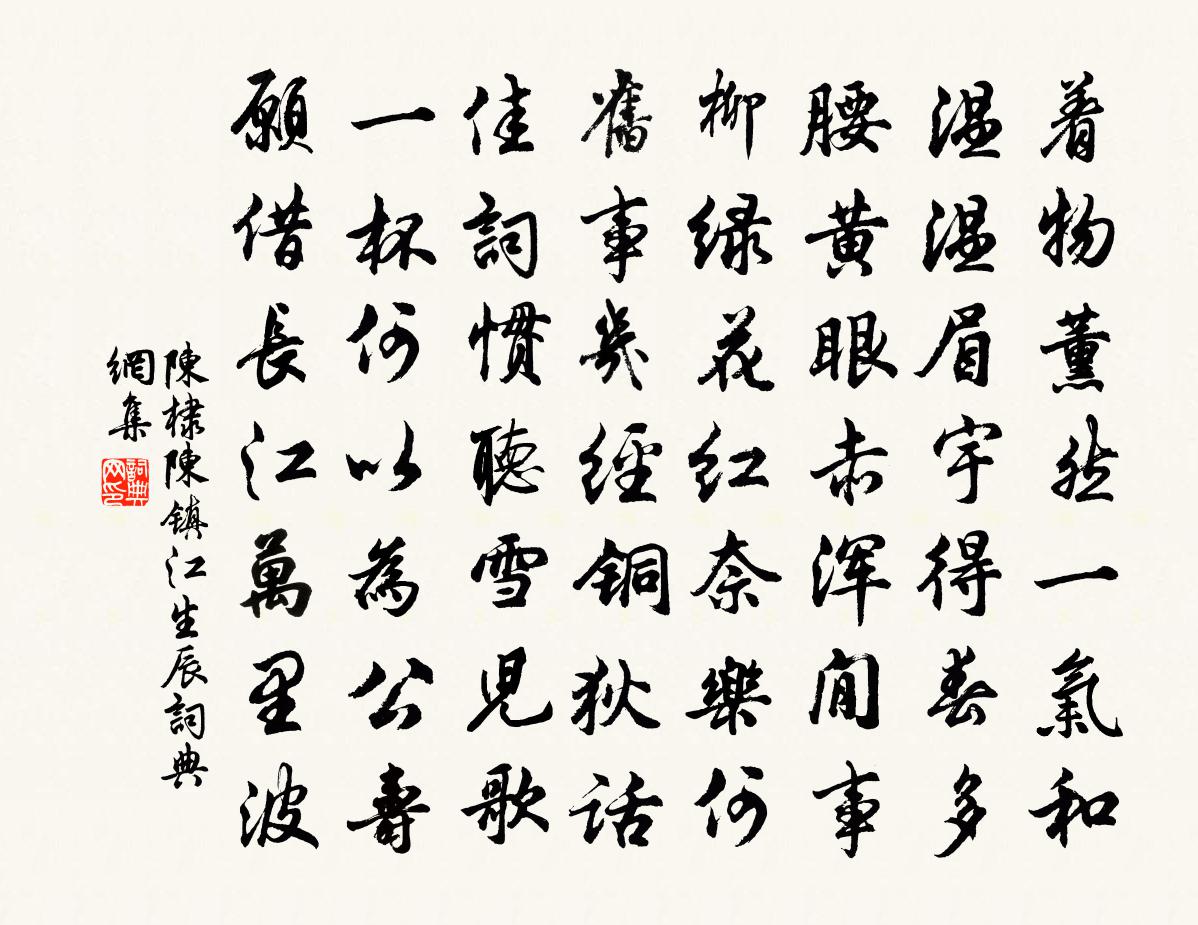 着物薰然一氣和
溫溫眉宇得春多
腰黄眼赤渾閒事
柳緑花紅奈樂何
舊事幾經銅狄話
佳詞慣聽雪兒歌
一杯何以為公壽
願借長江萬里波
陳棣陳鎮江生辰詞典
網集
詞典
网印